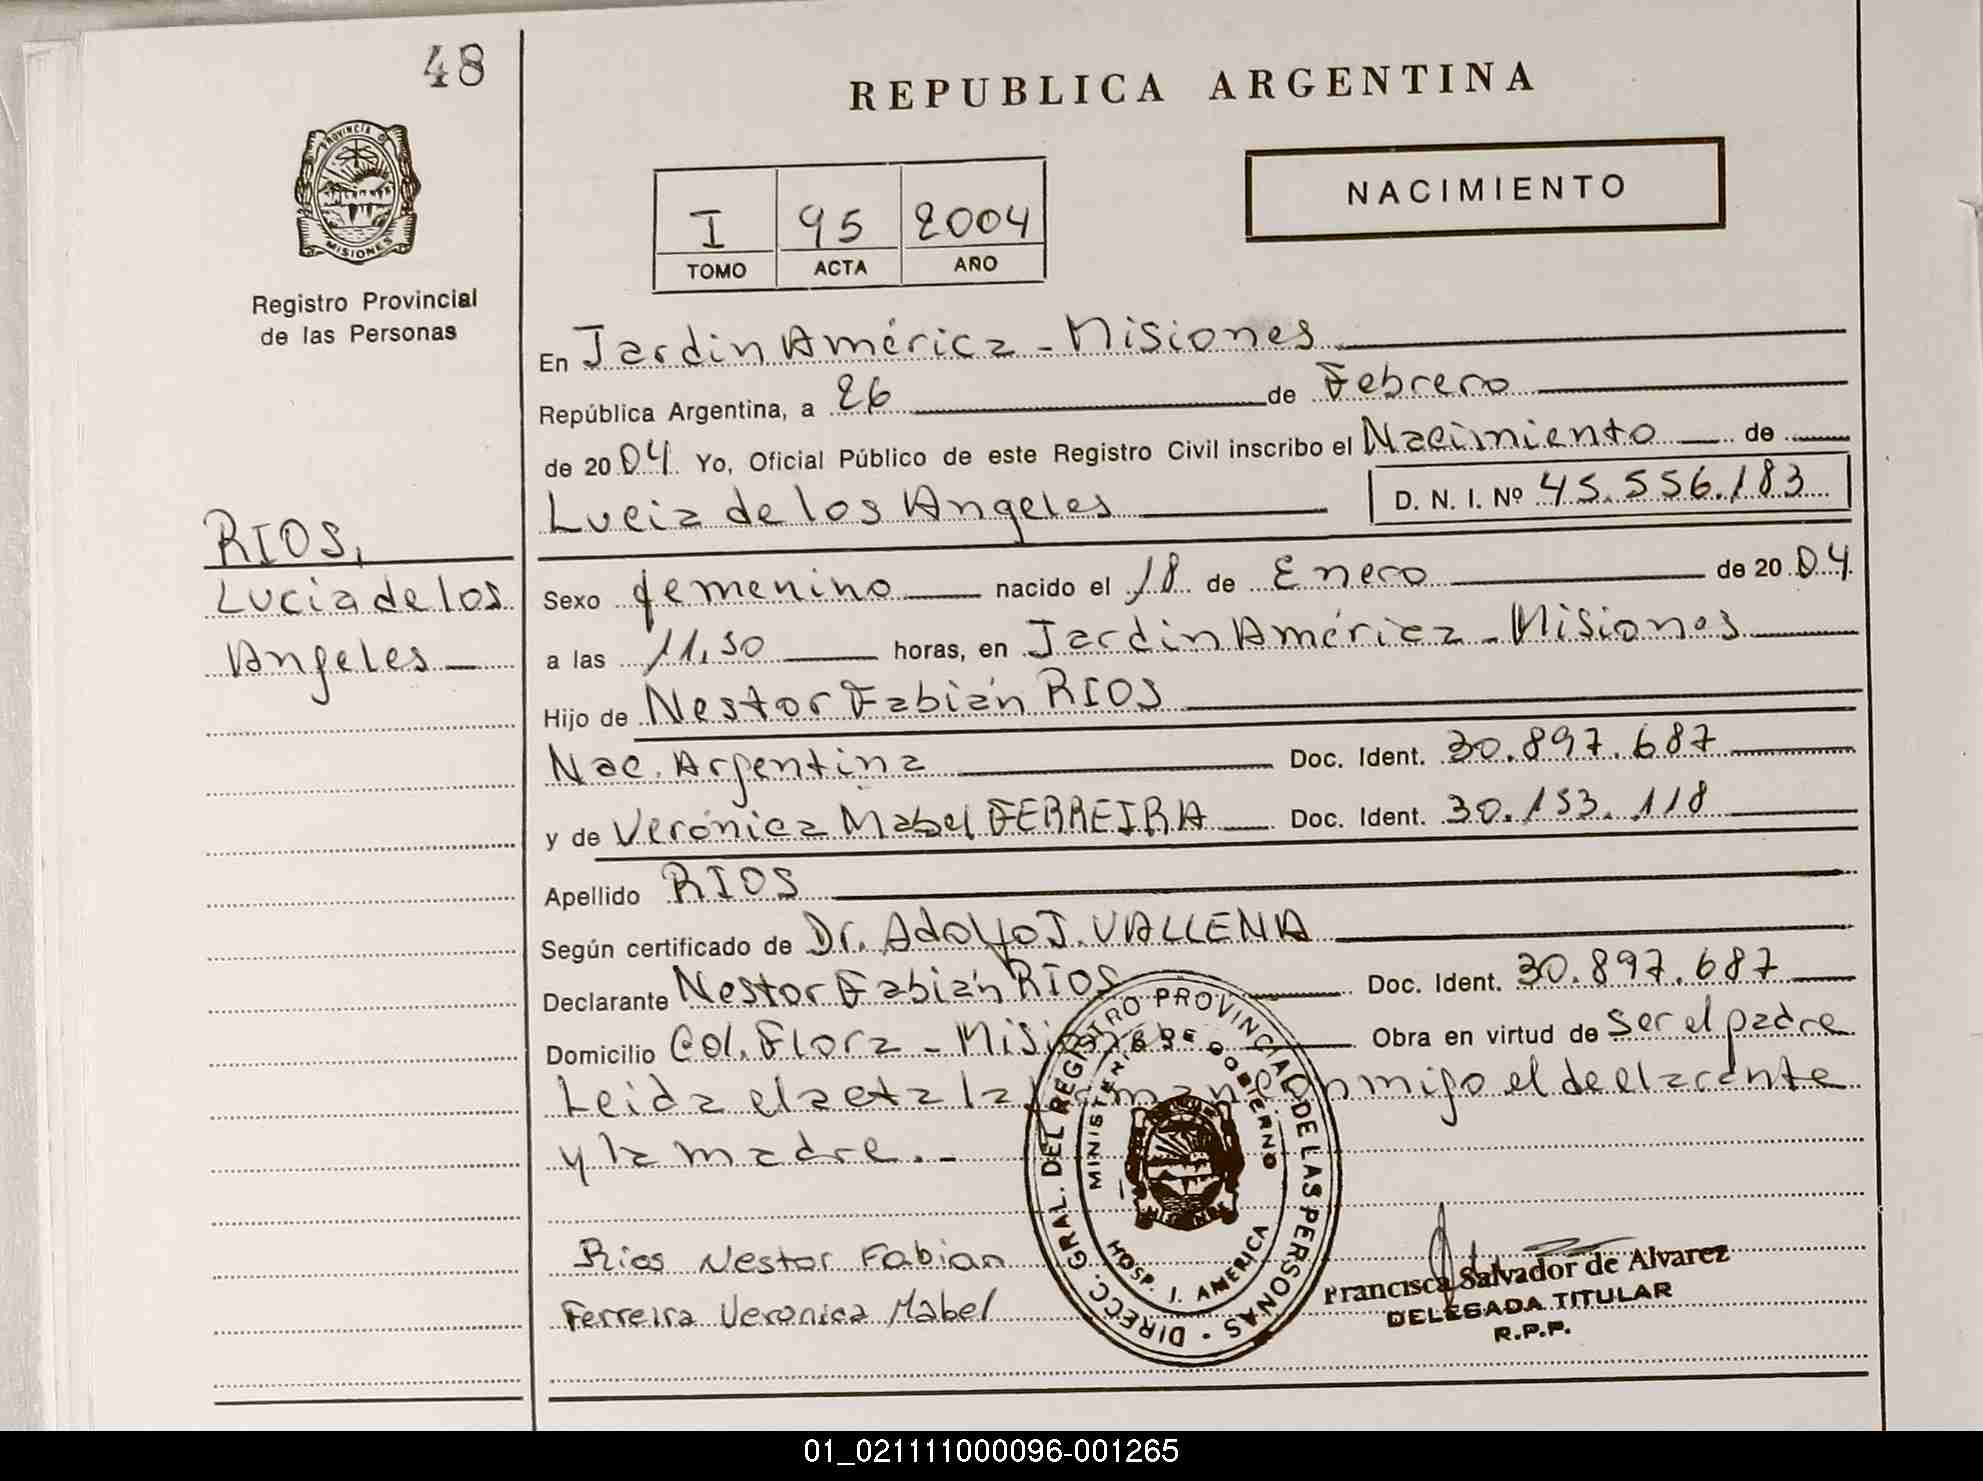 48
REPUBLICA ARGENTINA
PROVINCIA DE
MISIONES
Registro Provincial
de las Personas
NACIMIENTO
I 95 2004
TOMO ACTA AÑO
En Jardin América - Misiones
República Argentina, a 26 de Febrero
de 2004 Yo, Oficial Público de este Registro Civil inscribo el Nacimiento de
Lucia de los Angeles D. N. I. Nº 45.556.183
RIOS,
Lucia de los
Angeles
Sexo femenino nacido el 18 de Enero de 2004
a las 11,30 horas, en Jardin América - Misiones
Hijo de Nestor Fabián RIOS
Nac. Argentina Doc. Ident. 30.897.687
y de Verónica Mabel FERREIRA Doc. Ident. 30.153.118
Apellido RIOS
Según certificado de Dr. Adolfo J. VALLENA
Declarante Nestor Fabián RIOS Doc. Ident. 30.897.687
Domicilio Col. Flora - Misiones Obra en virtud de ser el padre
Leida el acta la firman conmigo el declarante
y la madre. -
DIRECC. GRAL. DEL REGISTRO PROVINCIAL DE LAS PERSONAS
MINISTERIO DE GOBIERNO
MISIONES
HOSP. J. AMERICA
Rios Nestor Fabian
Ferreira Veronica Mabel
Francisca Salvador de Alvarez
DELEGADA TITULAR
R.P.P.
01_021111000096-001265